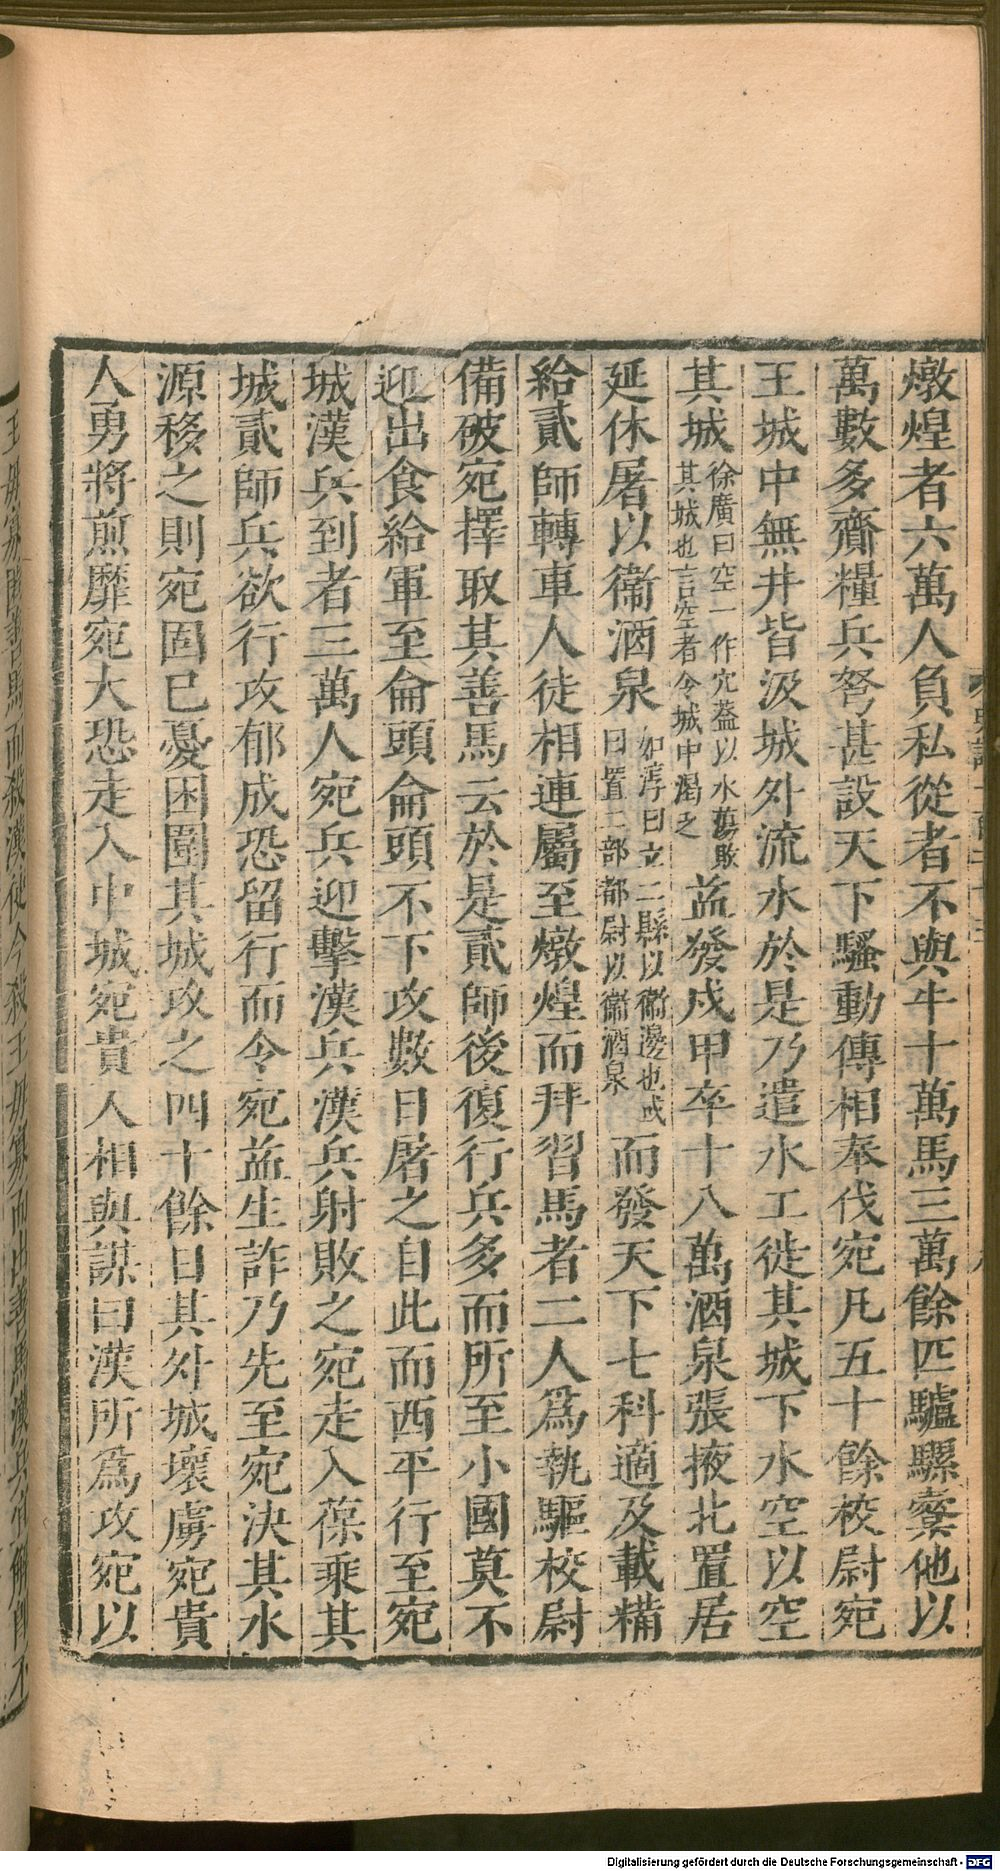 燉煌者六萬人負私從者不與牛十萬馬三萬餘匹驢騾橐他以
萬數多齎糧兵弩甚設天下騷動傳相奉伐宛凡五十餘校尉宛
王城中無井皆汲城外流水於是乃遣水工徙其城下水空以空
其城徐廣曰空一作穴葢以水蕩敗其城也言空者令城中渴乏益發戍甲卒十八萬酒泉張掖北置居
延休屠以衞酒泉如淳曰立二縣以衞邊也或曰置二部都尉以衞酒泉而發天下七科適及載糒
給貳師轉車人徒相連屬至燉煌而拜習馬者二人爲執驅校尉
備破宛擇取其善馬云於是貳師後復行兵多而所至小國莫不
迎出食給軍至侖頭侖頭不下攻數日屠之自此而西平行至宛
城漢兵到者三萬人宛兵迎擊漢兵漢兵射敗之宛走入葆乘其
城貳師兵欲行攻郁成恐留行而令宛益生詐乃先至宛決其水
源移之則宛固已憂困圍其城攻之四十餘日其外城壞虜宛貴
人勇將煎靡宛大恐走入中城宛貴人相與謀曰漢所爲攻宛以
Digitalisierung gefördert durch die Deutsche Forschungsgemeinschaft - DFG